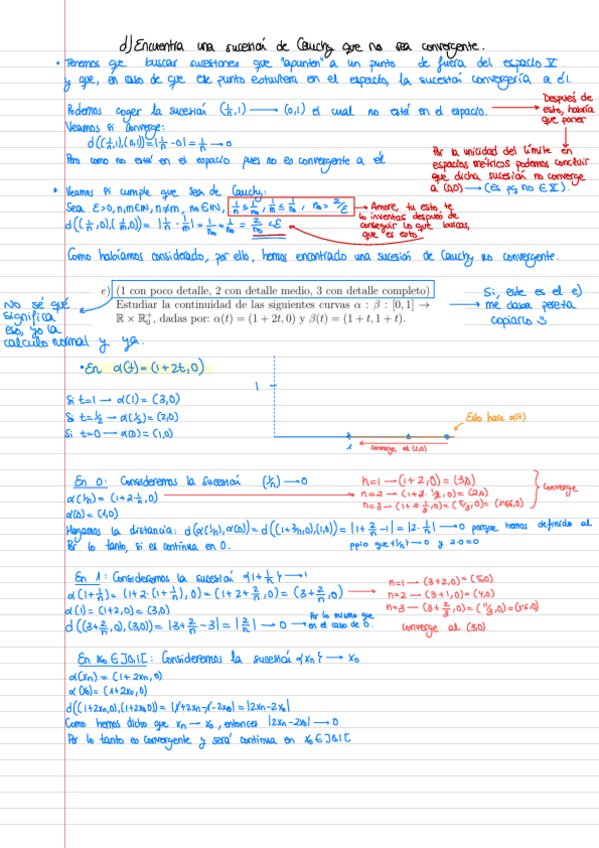 d) Encuentra una sucesión de Cauchy que no sea convergente.
• Tenemos que buscar sucesiones que "apunten" a un punto de fuera del espacio X
y que, en caso de que ese punto estuviera en el espacio, la sucesión convergería a él.
Podemos coger la sucesión (1/n,1) ⟶ (0,1) el cual no está en el espacio.
Después de
esto, habría
que poner
Veamos si converge:
d((1/n,1),(0,1)) = |1/n - 0| = 1/n → 0
Pero como no está en el espacio pues no es convergente a él
Por la unicidad del límite en
espacios métricos podemos concluir
que dicha sucesión no converge
a (0,0) → (es pq no ∈ X).
• Veamos si cumple que sea de Cauchy:
Sea ε>0, n,m∈ℕ, n≠m, n₀∈ℕ, 1/n ≤ 1/n₀, 1/m ≤ 1/n₀, n₀ > 2/ε
→ Amore, tu esto te
lo inventas después de
conseguir lo que buscas,
que es esto
d((1/n,0),(1/m,0)) = |1/n - 1/m| = 1/n₀ + 1/n₀ = 2/n₀ < ε
Como habíamos considerado, por ello, hemos encontrado una sucesión de Cauchy no convergente.
e) (1 con poco detalle, 2 con detalle medio, 3 con detalle completo)
Estudiar la continuidad de las siguientes curvas α : β : [0,1] →
ℝ × ℝ₀⁺, dadas por: α(t) = (1 + 2t, 0) y β(t) = (1 + t, 1 + t).
Si, este es el e)
me daba pereza
copiarlo
No sé qué
significa
eso, yo la
calculo normal y ya.
• En α(t) = (1+2t,0)
Si t=1 → α(1) = (3,0)
Si t=1/2 → α(1/2) = (2,0)
Si t=0 → α(0) = (1,0)
1
Esto hace α(t)
1
converge al (1,0)
En 0: Consideremos la sucesión (1/n) → 0
α(1/n) = (1+2·1/n,0)
α(0) = (1,0)
n=1 — (1+2,0) = (3,0)
n=2 — (1+2·1/2,0) = (2,0)
n=3 — (1+2·1/3,0) = (5/3,0) = (1'66,0)
converge
Hagamos la distancia: d(α(1/n),α(0)) = d((1+2/n,0),(1,0)) = |1+2/n-1| = |2·1/n| → 0 porque hemos definido al
ppio que {1/n} → 0 y 2·0=0
Por lo tanto, si es continua en 0.
En 1: Consideremos la sucesión {1+1/n} → 1
α(1+1/n) = (1+2·(1+1/n),0) = (1+2+2/n,0) = (3+2/n,0)
α(1) = (1+2,0) = (3,0)
d((3+2/n,0),(3,0)) = |3+2/n-3| = |2/n| → 0 → Por lo mismo que
en el caso de 0.
n=1 — (3+2,0) = (5,0)
n=2 — (3+1,0) = (4,0)
n=3 — (3+2/3,0) = (11/3,0) = (3'6,0)
converge al (3,0)
En x₀ ∈ ]0,1[: Consideremos la sucesión {xn} → x₀
α(xn) = (1+2xn,0)
α(x₀) = (1+2x₀,0)
d((1+2xn,0),(1+2x₀,0)) = |1+2xn-1-2x₀| = |2xn-2x₀|
Como hemos dicho que xn → x₀, entonces |2xn-2x₀| → 0
Por lo tanto es convergente y será continua en x₀ ∈ ]0,1[